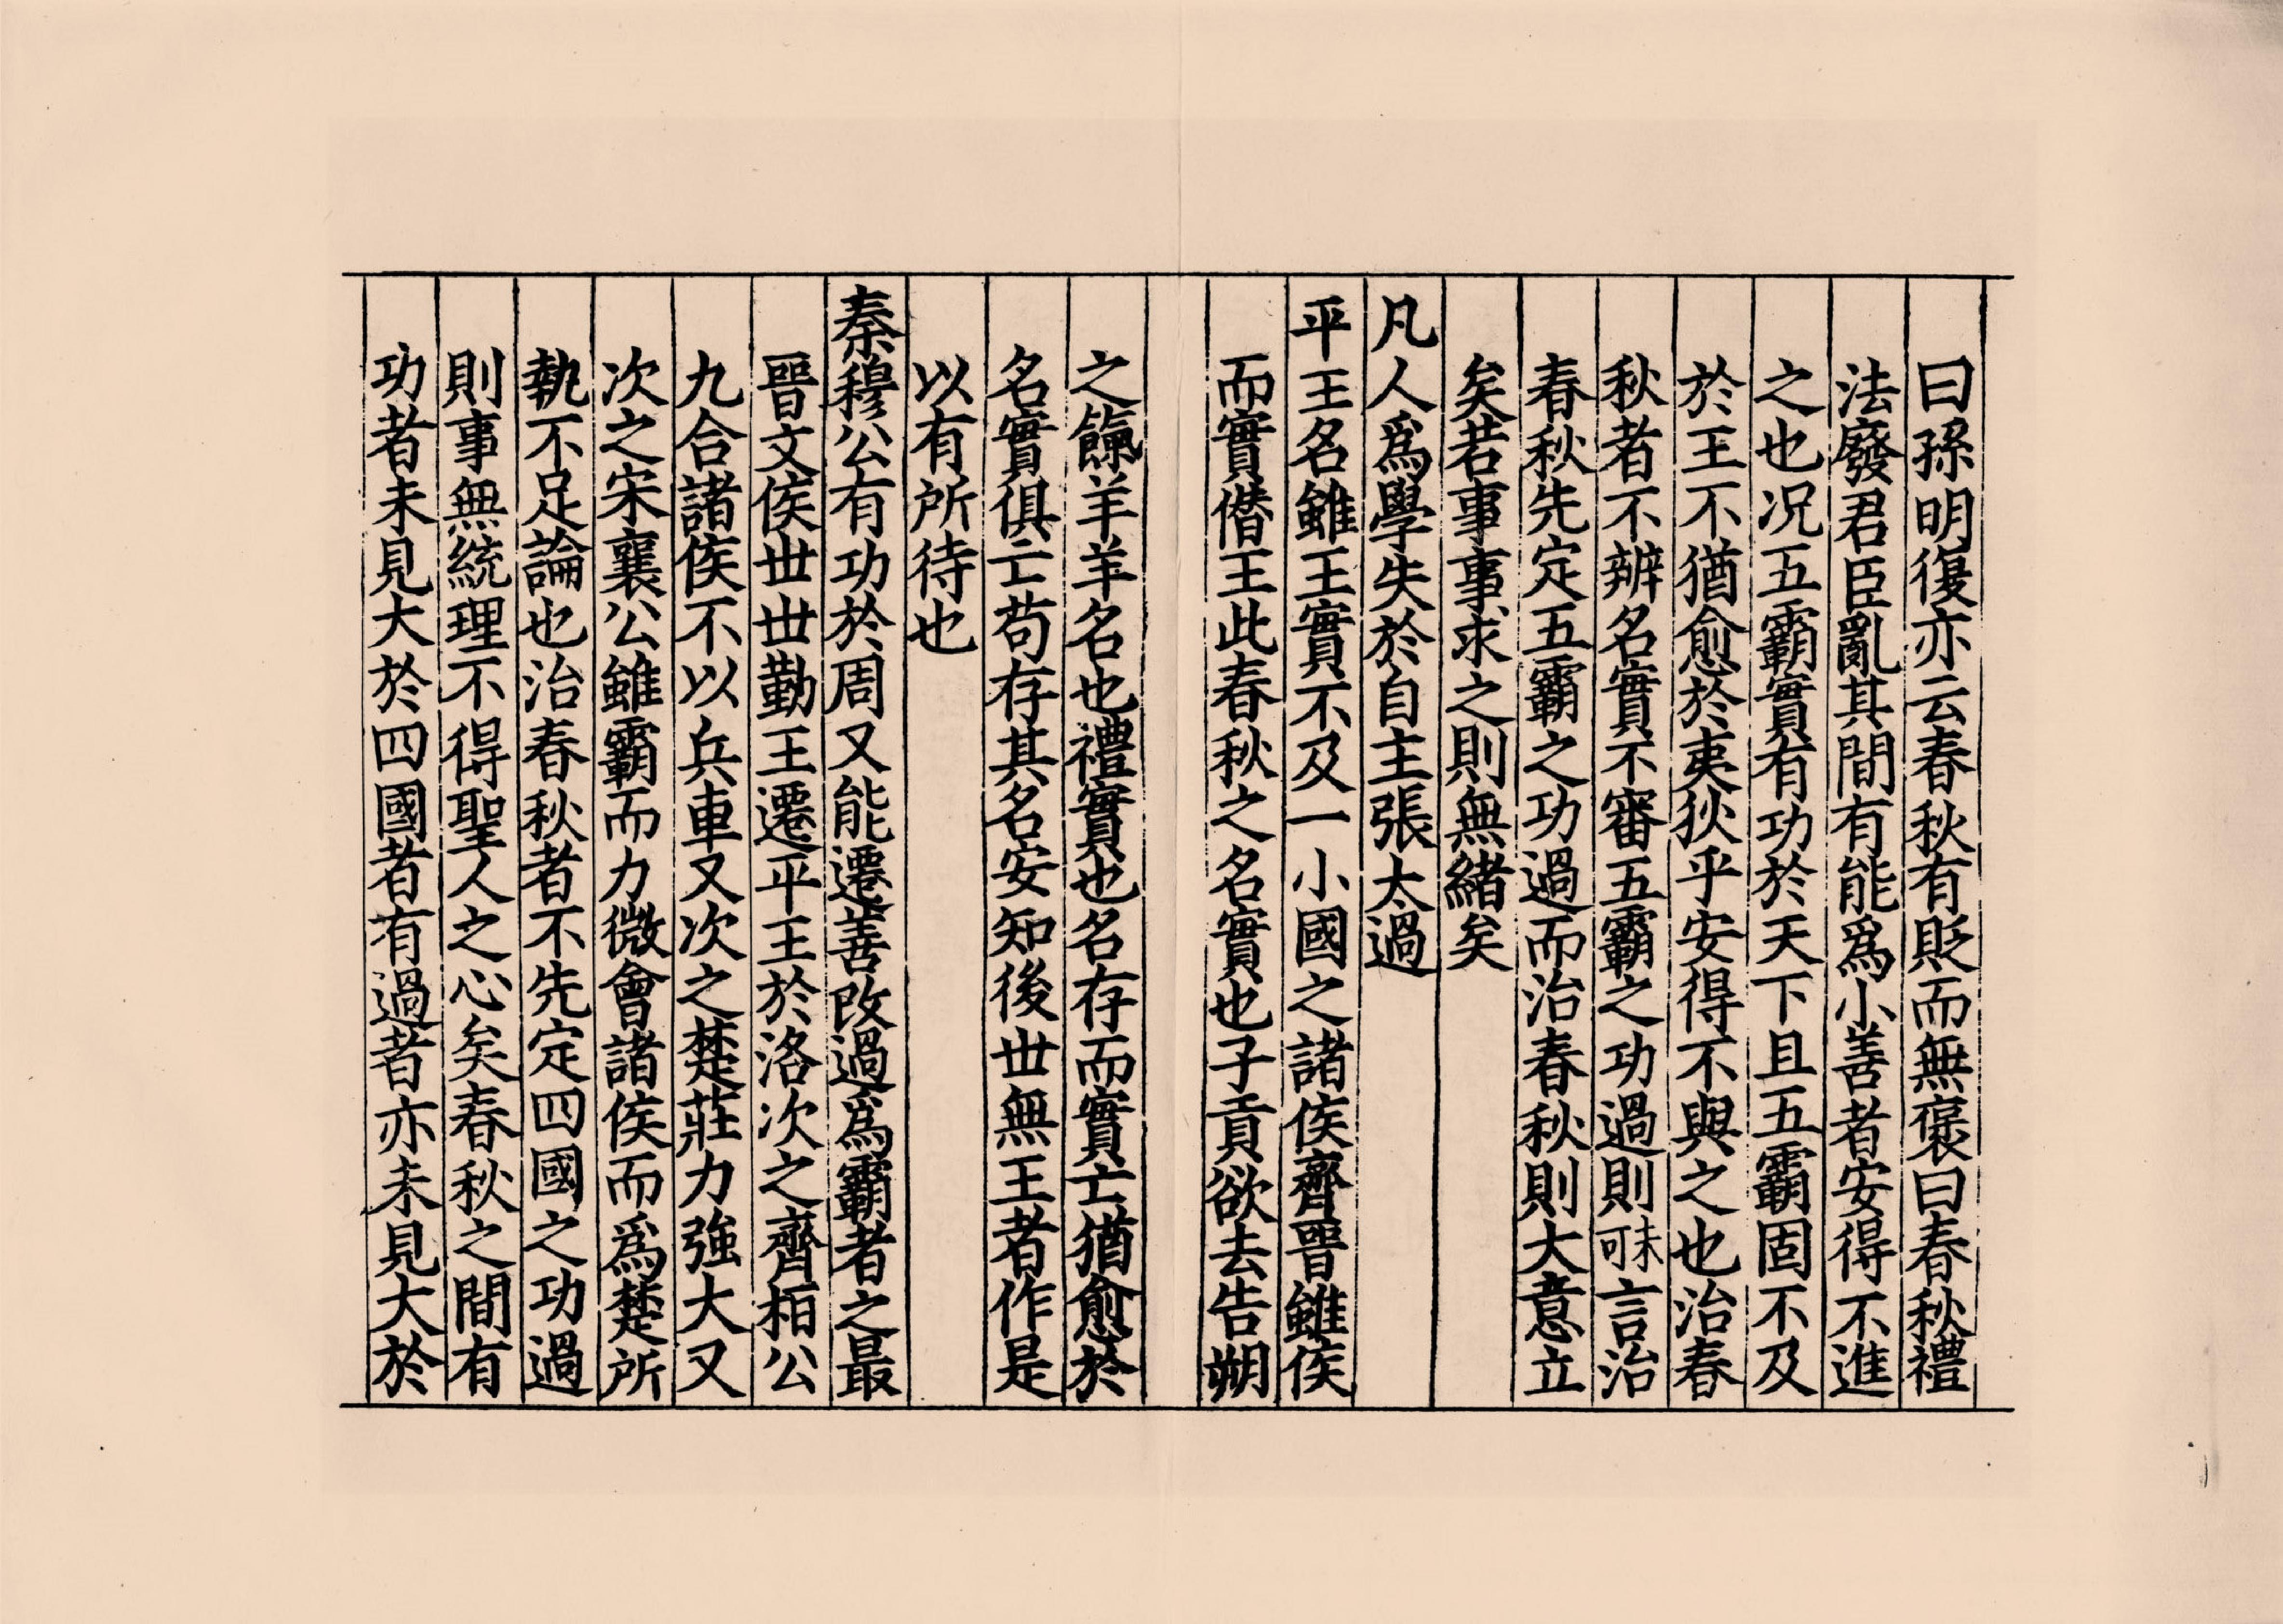 曰孫明復亦云春秋有貶而無褒曰春秋禮
法廢君臣亂其間有能爲小善者安得不進
之也况五霸實有功於天下且五霸固不及
於王不猶愈於夷狄乎安得不與之也治春
秋者不辨名實不審五霸之功過則未可言治
春秋先定五霸之功過而治春秋則大意立
矣若事事求之則無緒矣
凡人爲學失於自主張太過
平王名雖王實不及一小國之諸侯齊晉雖侯
而實僭王此春秋之名實也子貢欲去告朔
之餼羊羊名也禮實也名存而實亡猶愈於
名實俱亡苟存其名安知後世無王者作是
以有所待也
秦穆公有功於周又能遷善改過爲霸者之最
晉文侯世世勤王遷平王於洛次之齊桓公
九合諸侯不以兵車又次之楚莊力強大又
次之宋襄公雖霸而力微會諸侯而爲楚所
執不足論也治春秋者不先定四國之功過
則事無統理不得聖人之心矣春秋之間有
功者未見大於四國者有過者亦未見大於